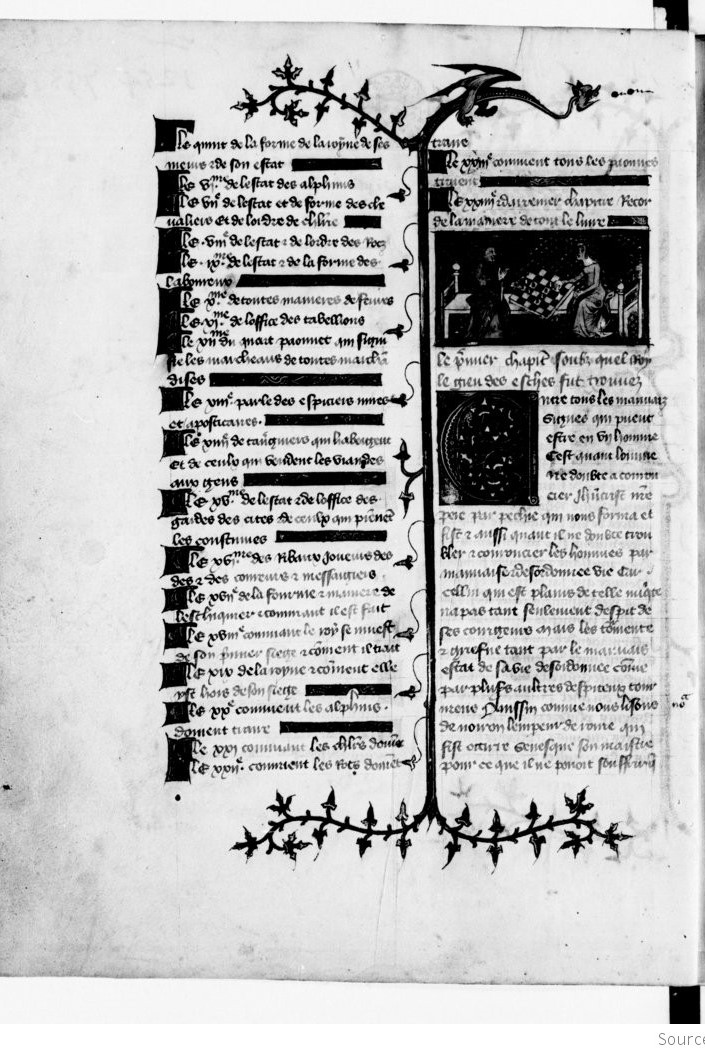 Le quint de la forme de la royne de ses
meurs ⁊ de son estat
Le VIme de lestat des alphins
Le VIIe de lestat et de forme des che
valiers Et de lordre de chlrie
Le VIIIe de lestat ⁊ de lordre des Rocz
Le IXe de lestat ⁊ de la forme des
laboureux
Le Xme de toutes manieres de feures
Le XIme de loffice des tabellions
Le XIIme du quart paonnet qui signi
fie les marcheans de toutes marchā
dises
Le XIIIe parle des espiciers mires
et apoticaires
Le XIIIIe de tauerniers qui habergent
Et de ceulx qui vendent les viandes
aux gens
Le XVme de lestat ⁊ de loffice des
gardes des cites de ceulx qui prēnēt
les coustumes
Le XVIme des Ribaux Joueurs des
des ⁊ des coureurs ⁊ messagiers
Le XVIIe de la fourme ⁊ maniere de
leschiquier ⁊ commant il est fait
Le XVIIIe commant le roy se muet
de son prmier siege ⁊ cōment il trait
Le XIX de la royne ⁊ cōment elle
yst hors de son siege
Le XXe comment les alphins
doiuent traire
Le XXI commant les chlrs doiuēt
Le XXIIe comment les Rocs doiuēt
traire
Le XXIIIe comment tous les paonnes
traient
Le XXIIIIe ⁊ darrenier chapitre Recor
de la maniere de tout le liure
le prmier chapit soubz quel roy
le gieu des esches fut trouuez
Entre tous les mauuaiz
signes qui pueut
estre en vn homme
Cest quant lomme
ne doubte a courou
cier Jhucrist nre
pere par pechie qui nous forma et
fist ⁊ aussi quant il ne doubte trou
bler ⁊ courroucier les hommes par
mauuaise ⁊ desordonnee vie Car
cellui qui est plains de telle
na pas tant seulement despit de
ses courgeurs mais les tōmente
⁊ griefue tant par le mauuais
estat de sa vie desordonnee cōme
par plusrs aultres despiteux tour
mens Aussin comme nous lisons
de noiron lempeur de rome qui
fist occirre senesque son maistre
pour ce que il ne pouoit souffrir
noa
Source